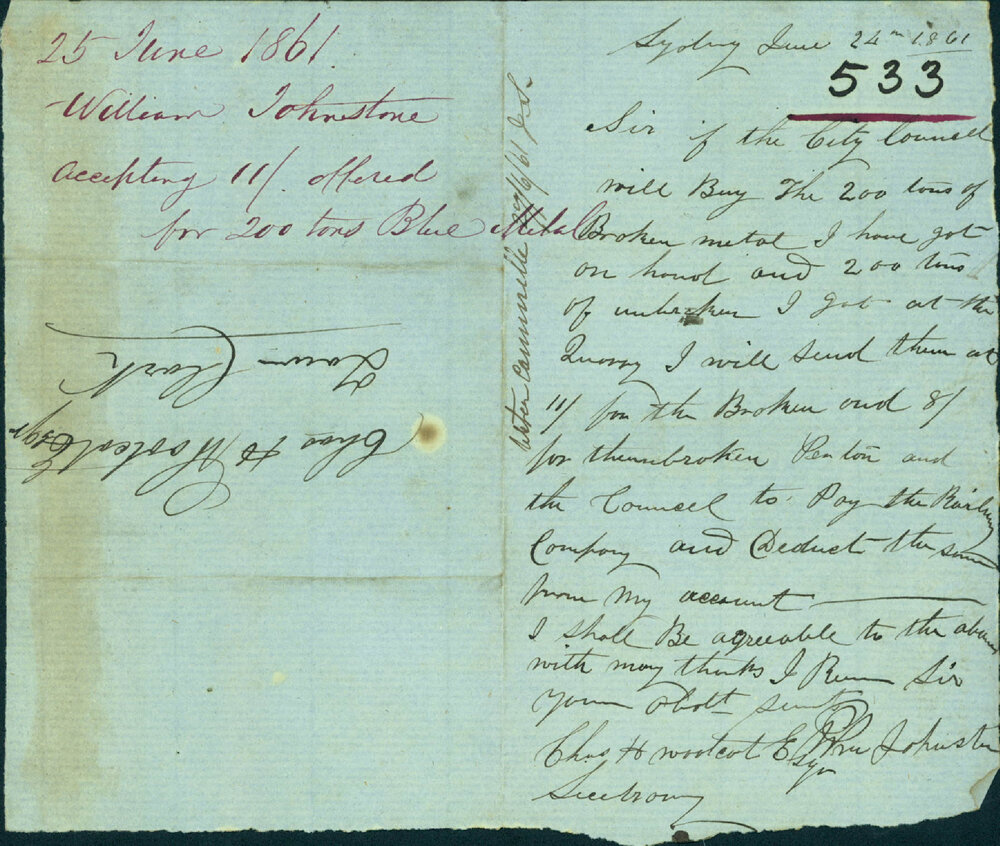 25 June 1861.
William Johnstone
Accepting 11/. offered
for 200 tons Blue Metal
Chas H Woolcott Esqr
Town Clerk
Sydney June 24th 1861
533
Sir if the City Councell
will Buy The 200 tons of
Broken metal I have got
on hand and 200 tons
of unbroken I got at the
Quarry I will send them at
11/ for the Broken and 8/
for the unbroken Per ton and
the Councel to Pay the Railway
Company and Deduct the same
from my account
I shall Be agreeable to the above
with many thanks I Remn Sir
your obdt servt
Wm Johnston
Chas H woolcot Esqr
Secetrary